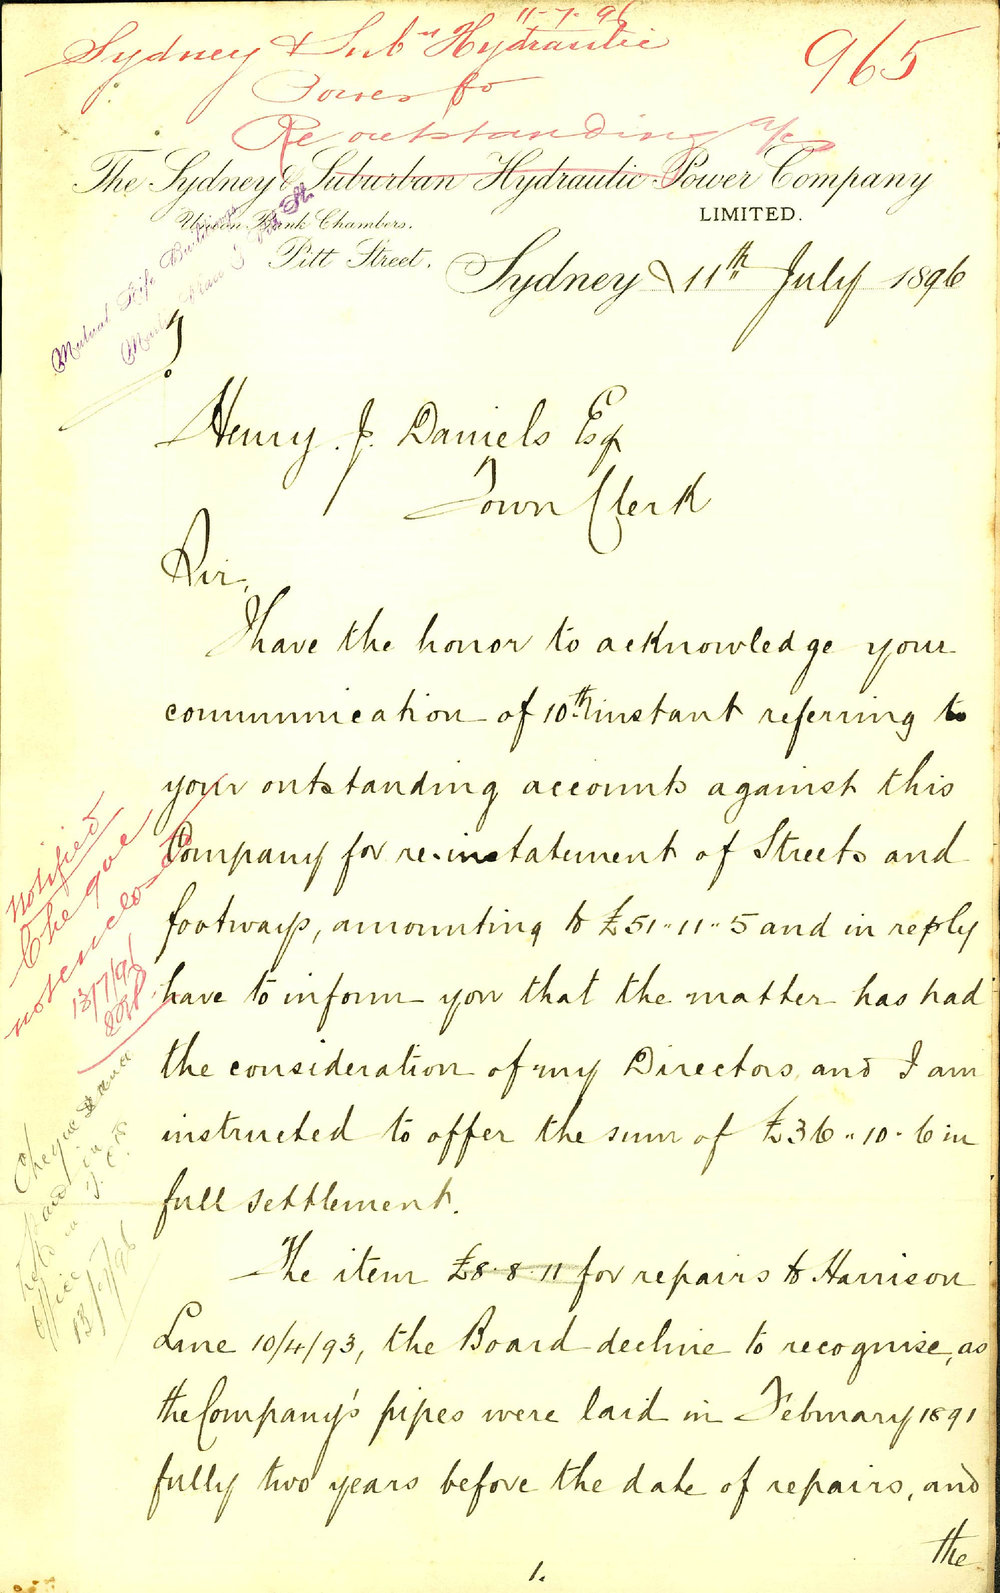 11-7-96
Sydney & Subn Hydraulic
Power Co
Re outstanding a/cs
965
The Sydney & Suburban Hydraulic Power Company
LIMITED.
Union Bank Chambers.
Pitt Street.
Mutual Life Buildings
Sydney 11th July 1896
Henry J. Daniels Esq
Town Clerk
Sir,
I have the honor to acknowledge your
communication of 10th instant referring to
your outstanding accounts against this
Company for re-instatement of Streets and
footways, amounting to £51-11-5 and in reply
have to inform you that the matter has had
the consideration of my Directors and I am
instructed to offer the sum of £36-10-6 in
full settlement.
The item £8-8-11 for repairs to Harrison
Lane 10/4/93, the Board decline to recognise, as
the Company's pipes were laid in February 1891
fully two years before the date of repairs, and
the
1.
Notified
Cheque
not enclosed
13/7/96
Cheque
paid in
Office
13/7/96